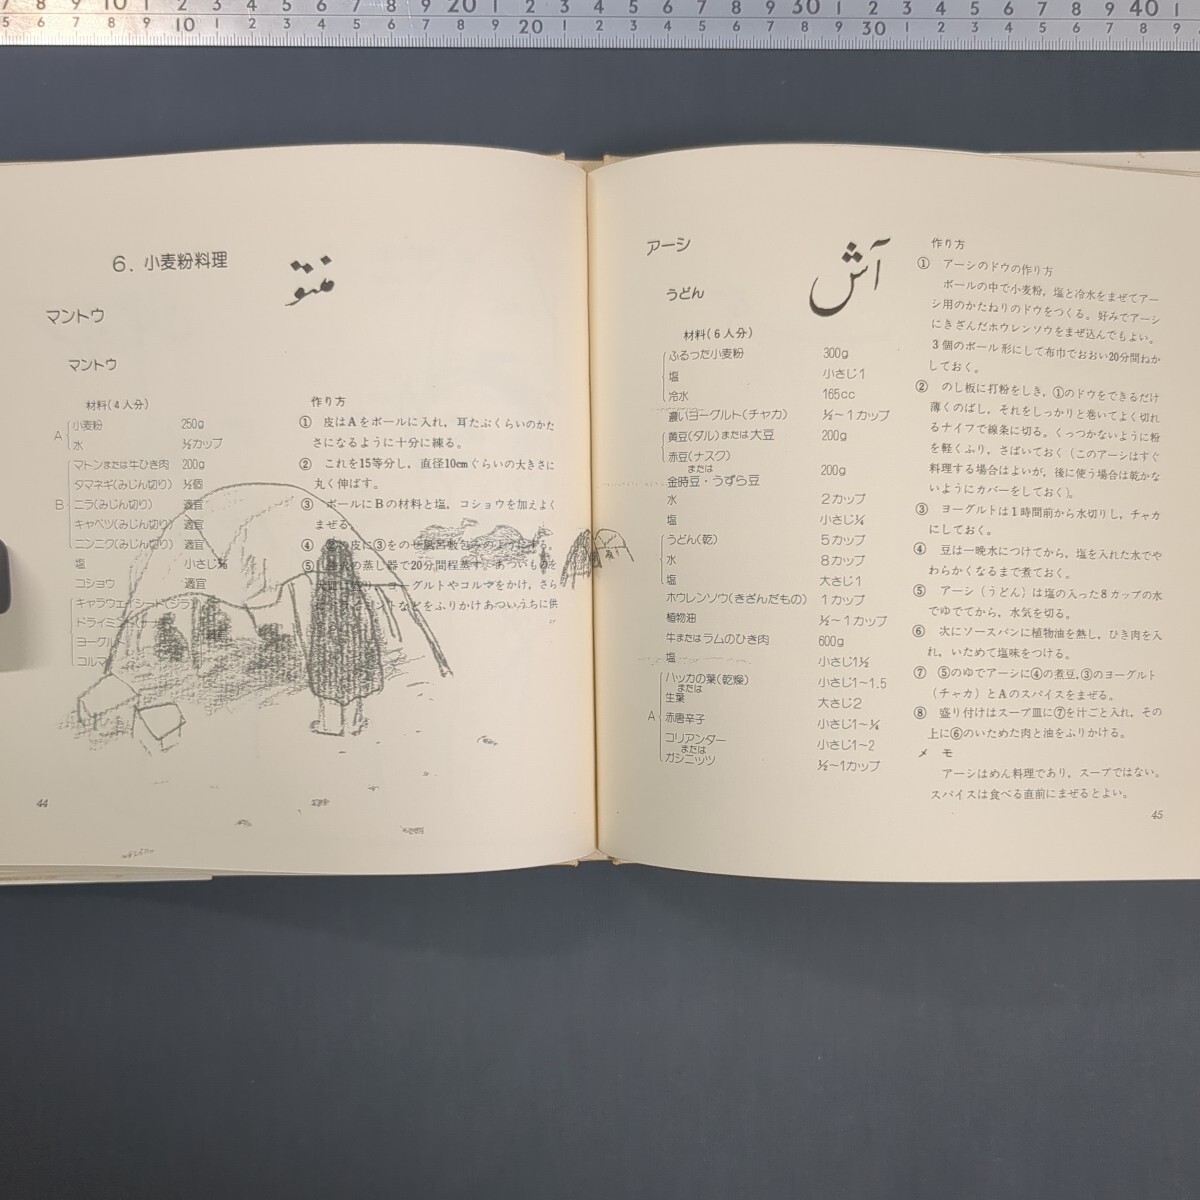 6. 小麦粉料理
منتو
マントウ
マントウ
材料(4人分)
A
小麦粉 250g
水 ½カップ
B
マトンまたは牛ひき肉 200g
タマネギ(みじん切り) ½個
ニラ(みじん切り) 適宜
キャベツ(みじん切り) 適宜
ニンニク(みじん切り) 適宜
塩 小さじ
コショウ 適宜
キャラウェイシード(ジラ
ドライミント
ヨーグルト
コルマ
作り方
① 皮はAをボールに入れ，耳たぶくらいのかた
さになるように十分に練る。
② これを15等分し，直径10cmぐらいの大きさに
丸く伸ばす。
③ ボールにBの材料と塩，コショウを加えよく
まぜる。
④ 皮に③をのせ風呂敷包みのようにする。
⑤ の蒸し器で20分間程蒸す。あついものを
ヨーグルトやコルマをかけ，さら
ミントなどをふりかけあついうちに供
44
アーシ
آش
うどん
材料(6人分)
ふるった小麦粉 300g
塩 小さじ1
冷水 165cc
濃いヨーグルト(チャカ) ½〜1カップ
黄豆(ダル)または大豆 200g
赤豆(ナスク)
または
金時豆・うずら豆 200g
水 2カップ
塩 小さじ¼
うどん(乾) 5カップ
水 8カップ
塩 大さじ1
ホウレンソウ(きざんだもの) 1カップ
植物油 ½〜1カップ
牛またはラムのひき肉 600g
塩 小さじ1½
A
ハッカの葉(乾燥) 小さじ1〜1.5
または
生葉 大さじ2
赤唐辛子 小さじ1〜¼
コリアンダー 小さじ1〜2
または
ガシニッツ ½〜1カップ
作り方
① アーシのドウの作り方
ボールの中で小麦粉，塩と冷水をまぜてアー
シ用のかたねりのドウをつくる。好みでアーシ
にきざんだホウレンソウをまぜ込んでもよい。
3個のボール形にして布巾でおおい20分間ねか
しておく。
② のし板に打粉をしき，①のドウをできるだけ
薄くのばし，それをしっかりと巻いてよく切れ
るナイフで線条に切る。くっつかないように粉
を軽くふり，さばいておく（このアーシはすぐ
料理する場合はよいが，後に使う場合は乾かな
いようにカバーをしておく）。
③ ヨーグルトは1時間前から水切りし，チャカ
にしておく。
④ 豆は一晩水につけてから，塩を入れた水でや
わらかくなるまで煮ておく。
⑤ アーシ（うどん）は塩の入った8カップの水
でゆでてから，水気を切る。
⑥ 次にソースパンに植物油を熱し，ひき肉を入
れ，いためて塩味をつける。
⑦ ⑤のゆでアーシに④の煮豆，③のヨーグルト
（チャカ）とAのスパイスをまぜる。
⑧ 盛り付けはスープ皿に⑦を汁ごと入れ，その
上に⑥のいためた肉と油をふりかける。
メモ
アーシはめん料理であり，スープではない。
スパイスは食べる直前にまぜるとよい。
45